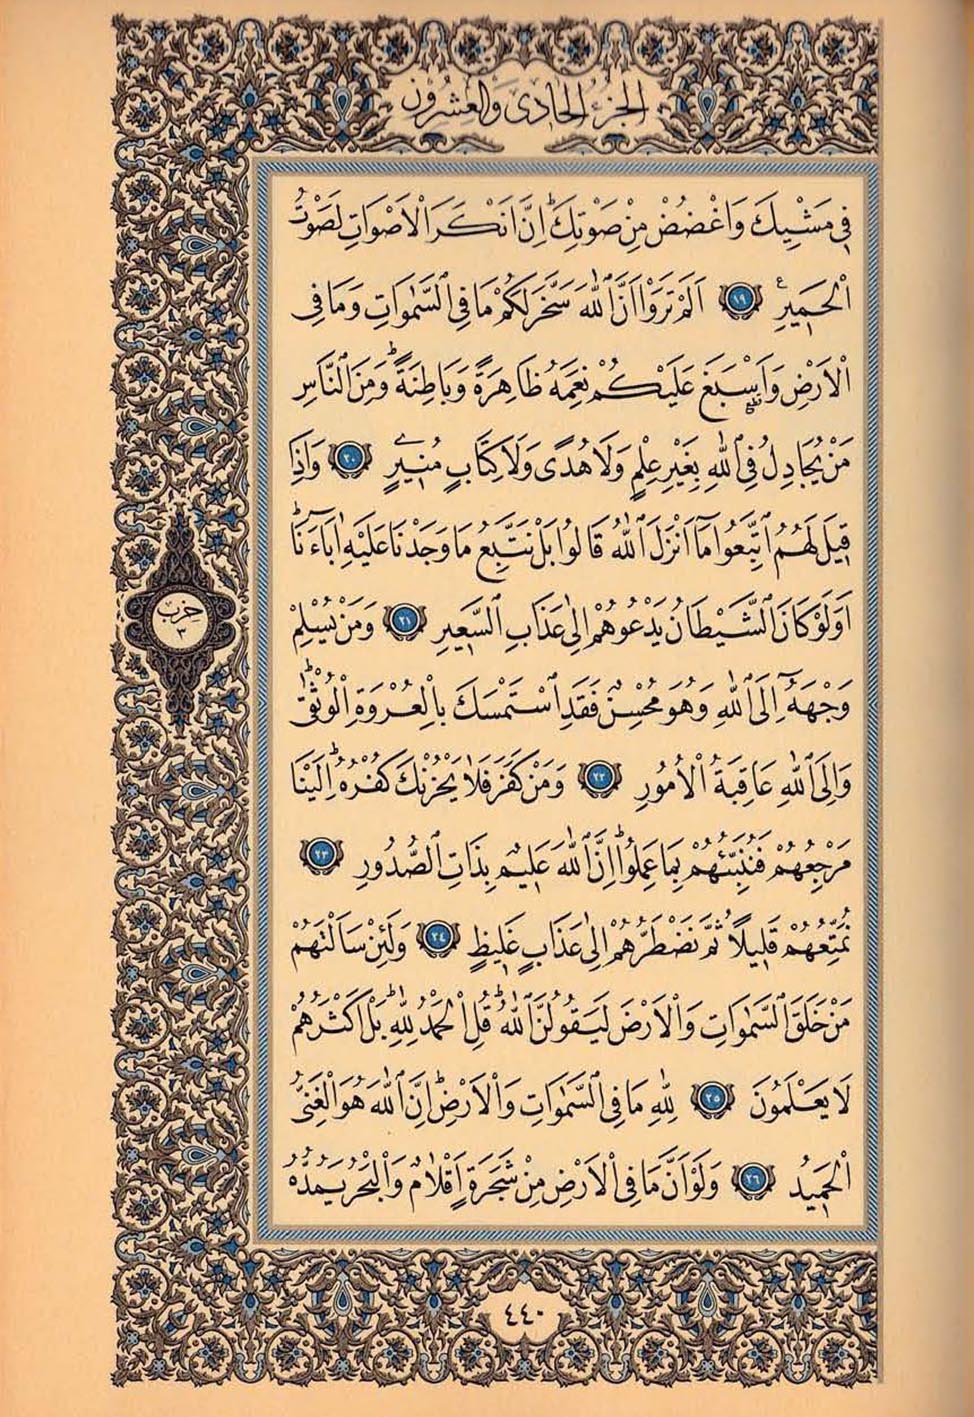 الجزء الحادى والعشرون
فِى مَشْيِكَ وَاغْضُضْ مِنْ صَوْتِكَۜ اِنَّ اَنْكَرَ الْاَصْوَاتِ لَصَوْتُ
الْحَمٖيرِࣖ ١٩ اَلَمْ تَرَوْا اَنَّ اللّٰهَ سَخَّرَ لَكُمْ مَا فِى السَّمٰوَاتِ وَمَا فِى
الْاَرْضِ وَاَسْبَغَ عَلَيْكُمْ نِعَمَهُ ظَاهِرَةً وَبَاطِنَةًۜ وَمِنَ النَّاسِ
مَنْ يُجَادِلُ فِى اللّٰهِ بِغَيْرِ عِلْمٍ وَلَا هُدًى وَلَا كِتَابٍ مُنٖيرٍ ٢٠ وَاِذَا
قٖيلَ لَهُمُ اتَّبِعُوا مَٓا اَنْزَلَ اللّٰهُ قَالُوا بَلْ نَتَّبِعُ مَا وَجَدْنَا عَلَيْهِ اٰبَٓاءَنَاۜ
اَوَلَوْ كَانَ الشَّيْطَانُ يَدْعُوهُمْ اِلٰى عَذَابِ السَّعٖيرِ ٢١ وَمَنْ يُسْلِمْ
وَجْهَهُٓ اِلَى اللّٰهِ وَهُوَ مُحْسِنٌ فَقَدِ اسْتَمْسَكَ بِالْعُرْوَةِ الْوُثْقٰىۜ
وَاِلَى اللّٰهِ عَاقِبَةُ الْاُمُورِ ٢٢ وَمَنْ كَفَرَ فَلَا يَحْزُنْكَ كُفْرُهُۜ اِلَيْنَا
مَرْجِعُهُمْ فَنُنَبِّئُهُمْ بِمَا عَمِلُواۜ اِنَّ اللّٰهَ عَلٖيمٌ بِذَاتِ الصُّدُورِ ٢٣
نُمَتِّعُهُمْ قَلٖيلًا ثُمَّ نَضْطَرُّهُمْ اِلٰى عَذَابٍ غَلٖيظٍ ٢٤ وَلَئِنْ سَاَلْتَهُمْ
مَنْ خَلَقَ السَّمٰوَاتِ وَالْاَرْضَ لَيَقُولُنَّ اللّٰهُۜ قُلِ الْحَمْدُ لِلّٰهِۜ بَلْ اَكْثَرُهُمْ
لَا يَعْلَمُونَ ٢٥ لِلّٰهِ مَا فِى السَّمٰوَاتِ وَالْاَرْضِۜ اِنَّ اللّٰهَ هُوَ الْغَنِىُّ
الْحَمٖيدُ ٢٦ وَلَوْ اَنَّ مَا فِى الْاَرْضِ مِنْ شَجَرَةٍ اَقْلَامٌ وَالْبَحْرُ يَمُدُّهُ
حزب
٣
٤٤٠